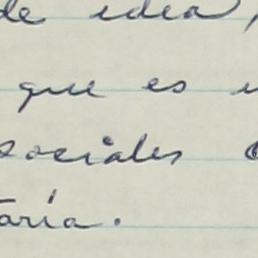 de idea,
que es
sociales
taría.